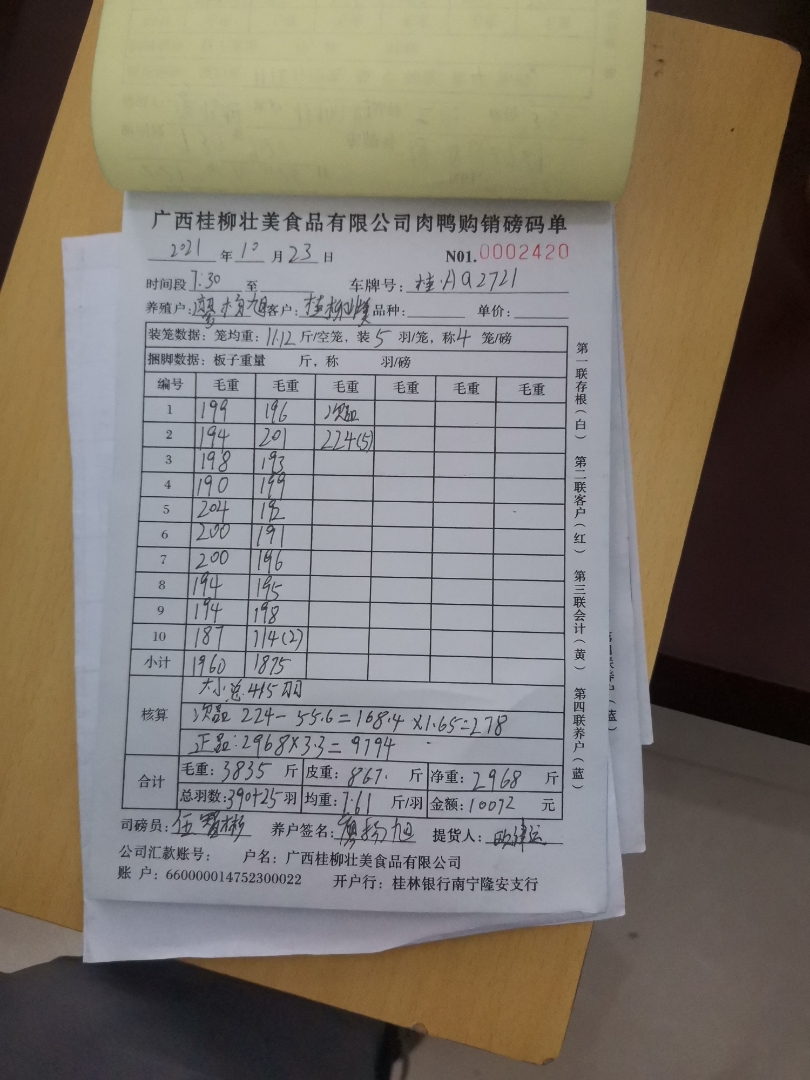 广西桂柳壮美食品有限公司肉鸭购销磅码单
2021 年 10 月 23 日 N01.0002420
时间段 7:30 至 车牌号：桂·AQ2721
养殖户： 杨旭 客户：桂柳壮美 品种： 单价：
装笼数据：笼均重：11.12 斤/空笼，装 5 羽/笼，称 4 笼/磅
捆脚数据：板子重量 斤，称 羽/磅
编号 毛重 毛重 毛重 毛重 毛重 毛重
1 199 196 次品
2 194 201 224(5)
3 198 193
4 190 199
5 204 192
6 200 191
7 200 196
8 194 195
9 194 198
10 187 114(2)
小计 1960 1875
核算 大小总 415羽
次品 224-55.6=168.4×1.65=278
正品：2968×3.3=9794
合计 毛重：3835 斤 皮重：867. 斤 净重：2968 斤
总羽数：390+25 羽 均重：7.61 斤/羽 金额：10072 元
司磅员：伍 彬 养户签名： 杨旭 提货人：
公司汇款账号： 户名：广西桂柳壮美食品有限公司
账 户：660000014752300022 开户行：桂林银行南宁隆安支行
第一联存根（白） 第二联客户（红） 第三联会计（黄） 第四联养户（蓝）